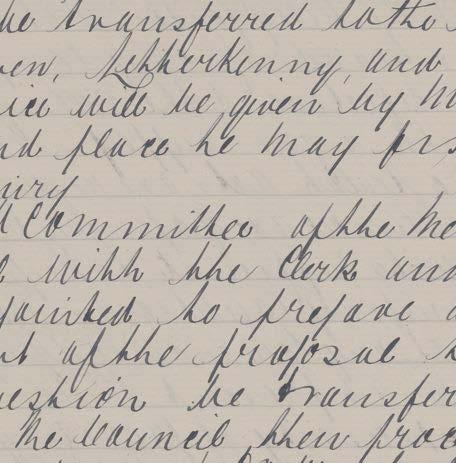 be transferred to the
en, Letterkenny, and
ice will be given by M
nd place he may
iry
d Committee of the Me
with the Clerk and
pointed to prepare a
nt of the proposal
estion be transfer
The Council then proc